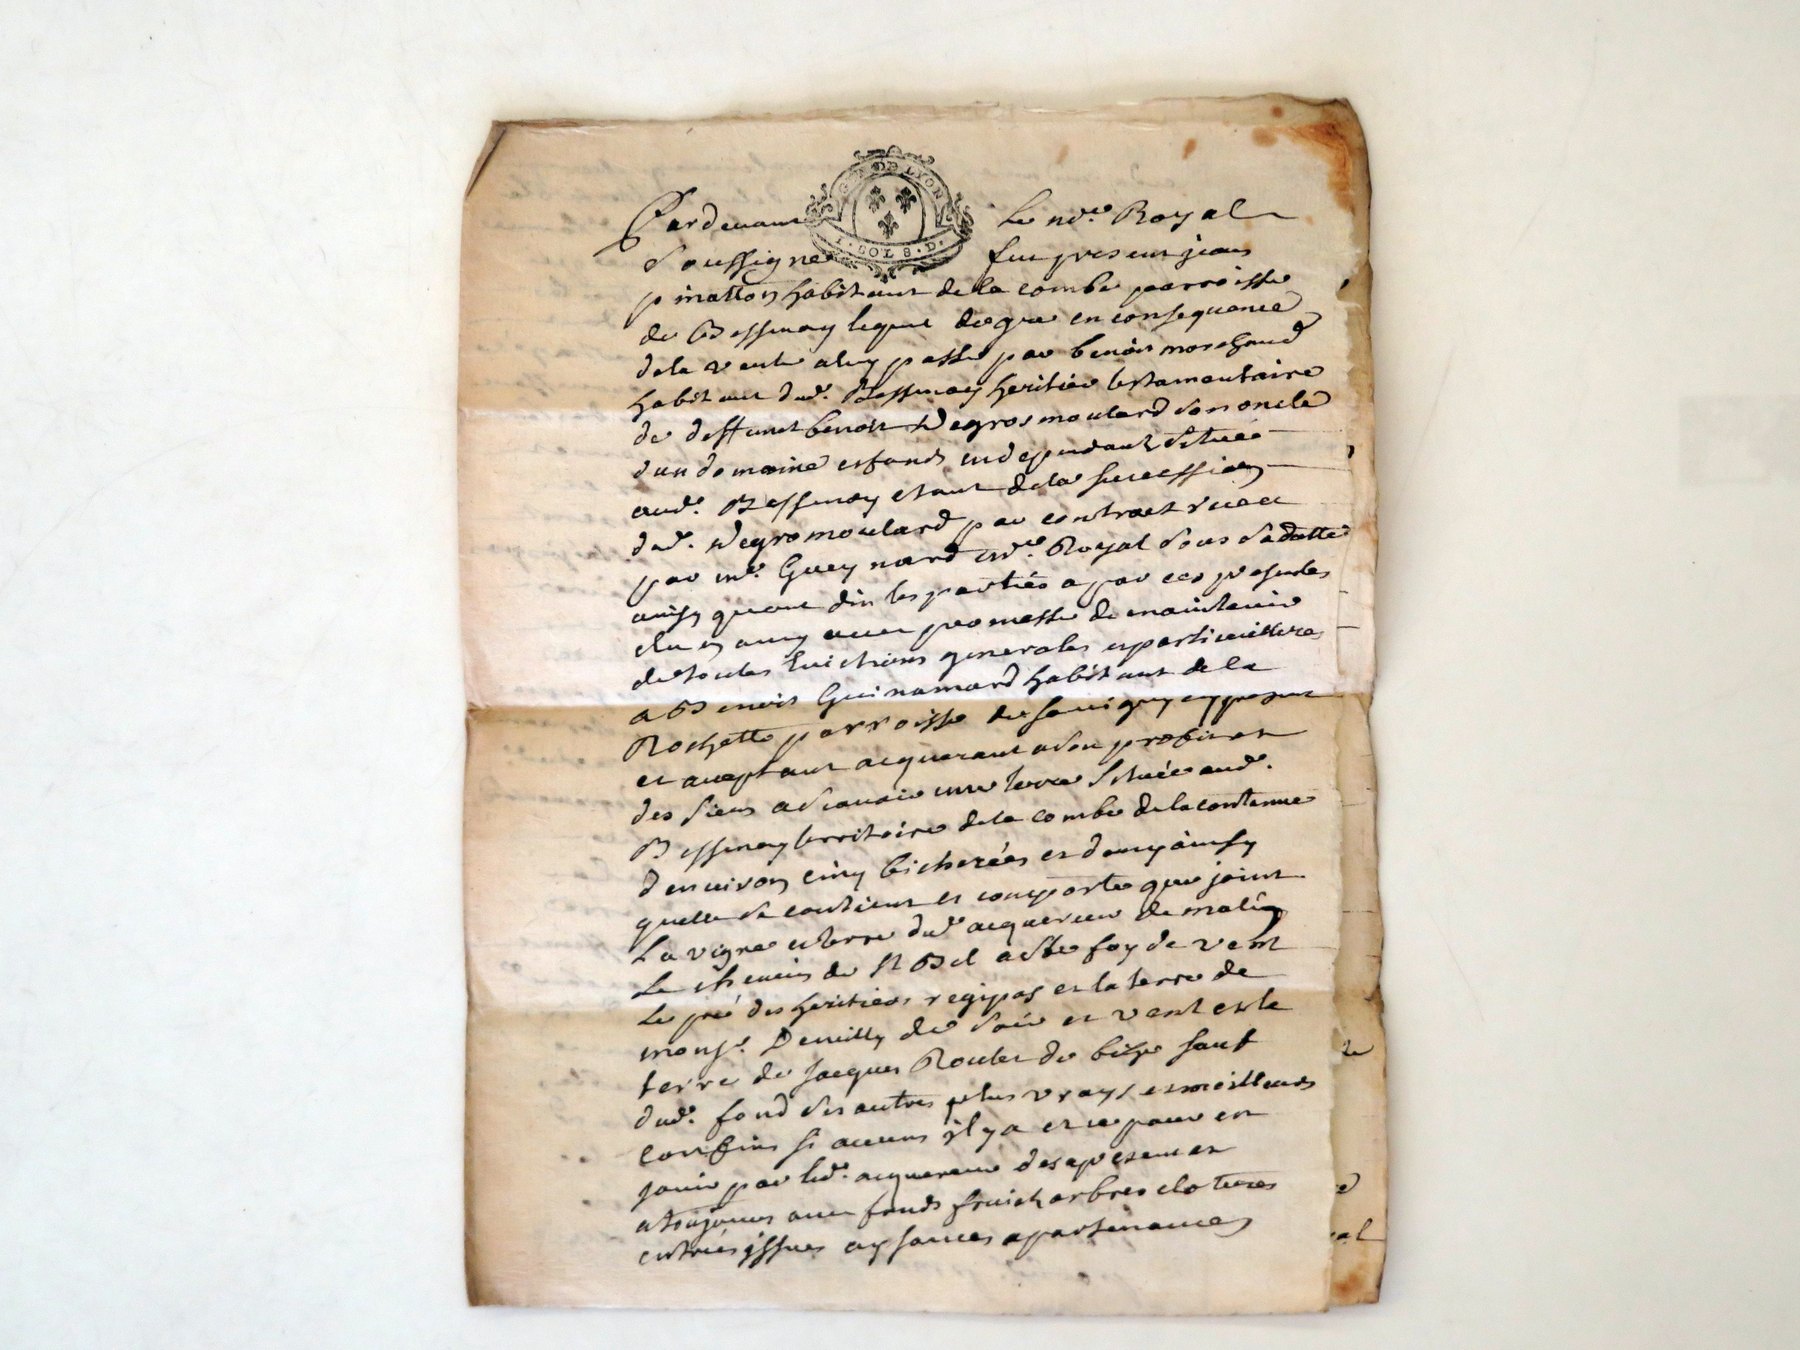 GEN. DE LYON
1. SOL 8. D.
Pardevant Le nore. Royal
Soussigne fut present jean
pinatton habitant de la combe parroisse
de Bessenay lequel de gre en consequence
de la vente a luy passé par benoist marchand
habitant dud. Bessenay heritier testamentaire
de deffunct benoist Degrosmoulard son oncle
dun domaine et fonds independant Situés
aud. Bessenay etant de la succession
dud. Degromoulard par contract receu
par me. Gueynard nore. Royal sous sa datte
ainsy quont dit les parties a par ces presentes
avec promesse de maintenir
de toutes Evictions generales et particuillieres
a Benoist Guinamard habitant de la
Rochette parroisse de Savigny cy present
et acceptant acquerant a son profit et
des siens a Scavoir une terre Située aud.
Bessenay territoire de la combe de la contenue
denviron cinq bicherées et demy ainsy
quelle se contient et comporte que joint
La vigne et terre dud. acquereur de matin
Le chemin de St Bel a Ste foy de vent
Le pré des heritiers regipas et la terre de
monsr. Deuilly de Soir et vent et le
terre de jacques Roulet de bize sauf
dud. fond ses autres plus vrays et meilleurs
confins si aucuns il y a et ce pour en
jouir par led. acquereur des apresent et
a toujours avec fonds fruich arbres clotures
entrées issues aysances apartenances